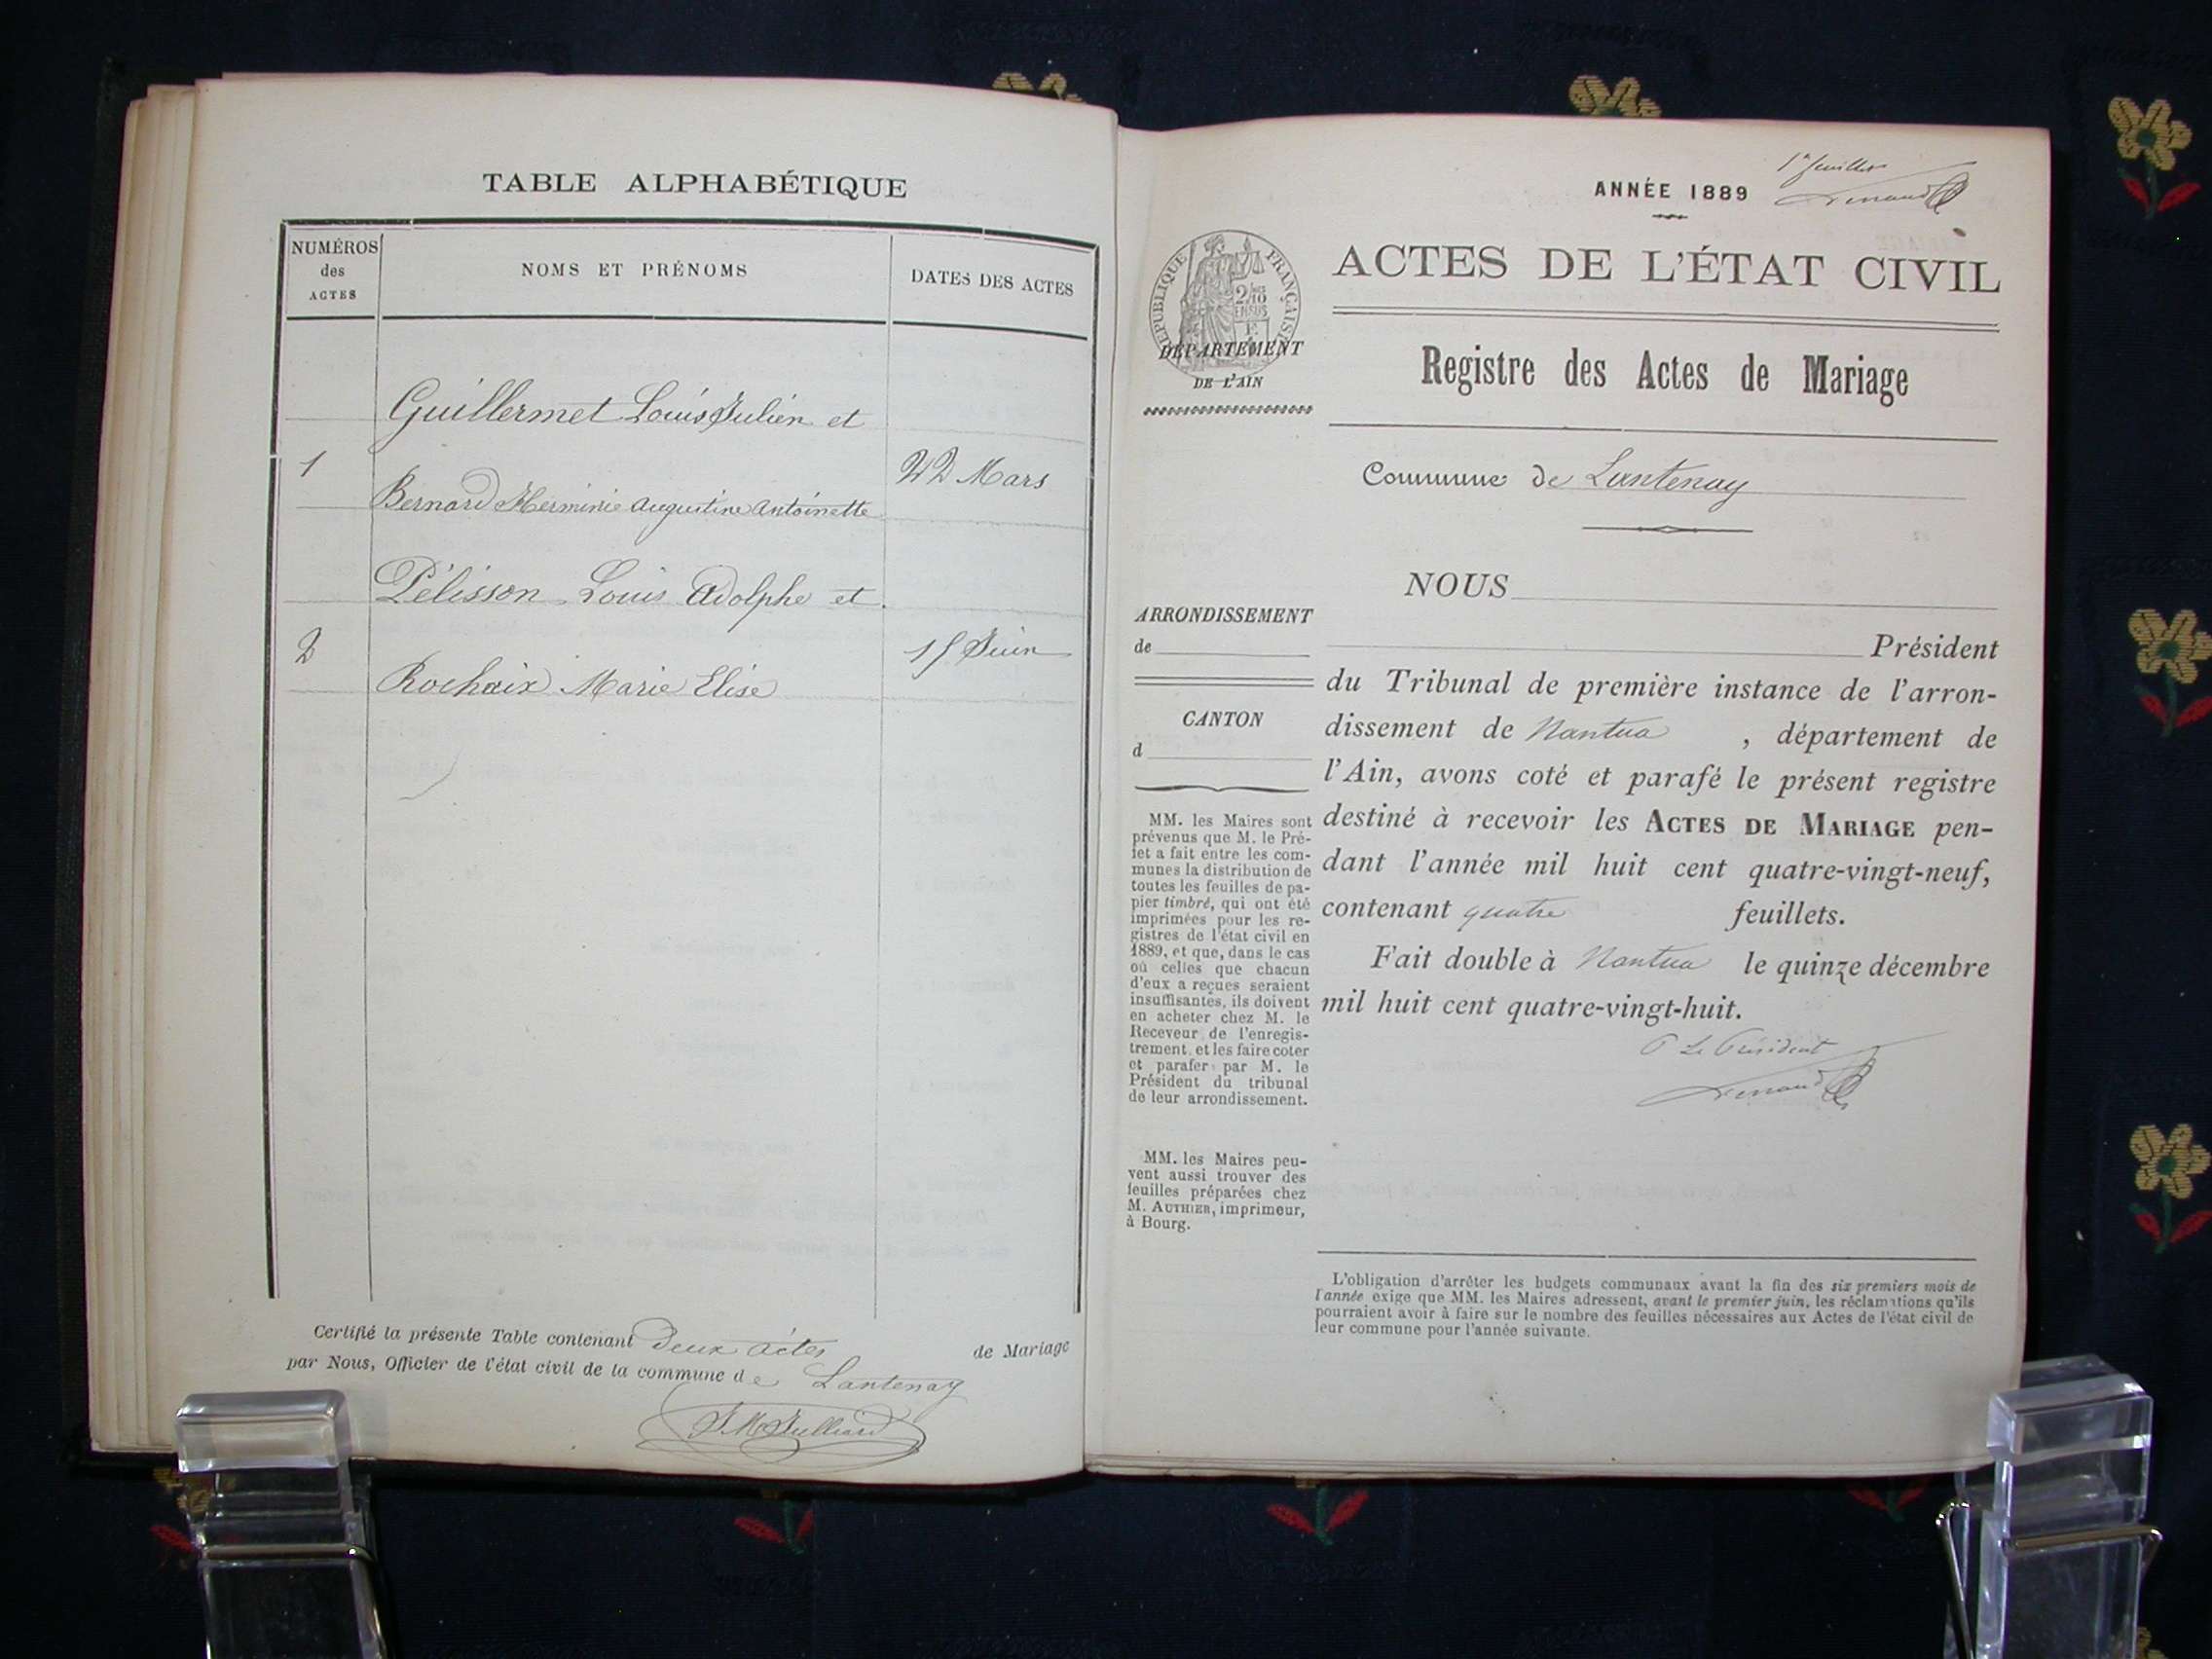 TABLE ALPHABÉTIQUE
NUMÉROS
des
ACTES
NOMS ET PRÉNOMS
DATES DES ACTES
Guillermet Louis Julien et
1
22 Mars
Bernard Herminie Augustine Antoinette
Pélisson Louis Adolphe et
2
15 Juin
Rochaix Marie Elise
Certifié la présente Table contenant deux actes de Mariage
par Nous, Officier de l'état civil de la commune de Lantenay
J M Julliard
1er feuillet
ANNÉE 1889
RÉPUBLIQUE FRANÇAISE
2/10
EN SUS
ACTES DE L'ÉTAT CIVIL
DÉPARTEMENT
DE L'AIN
Registre des Actes de Mariage
Commune de Lantenay
NOUS
ARRONDISSEMENT
de
CANTON
d
MM. les Maires sont
prévenus que M. le Pré-
fet a fait entre les com-
munes la distribution de
toutes les feuilles de pa-
pier timbré, qui ont été
imprimées pour les re-
gistres de l'état civil en
1889, et que, dans le cas
où celles que chacun
d'eux a reçues seraient
insuffisantes, ils doivent
en acheter chez M. le
Receveur de l'enregis-
trement, et les faire coter
et parafer par M. le
Président du tribunal
de leur arrondissement.
MM. les Maires peu-
vent aussi trouver des
feuilles préparées chez
M. AUTHIER, imprimeur,
à Bourg.
Président
du Tribunal de première instance de l'arron-
dissement de Nantua , département de
l'Ain, avons coté et parafé le présent registre
destiné à recevoir les ACTES DE MARIAGE pen-
dant l'année mil huit cent quatre-vingt-neuf,
contenant quatre feuillets.
Fait double à Nantua le quinze décembre
mil huit cent quatre-vingt-huit.
P Le Président
L'obligation d'arrêter les budgets communaux avant la fin des six premiers mois de
l'année exige que MM. les Maires adressent, avant le premier juin, les réclamations qu'ils
pourraient avoir à faire sur le nombre des feuilles nécessaires aux Actes de l'état civil de
leur commune pour l'année suivante.